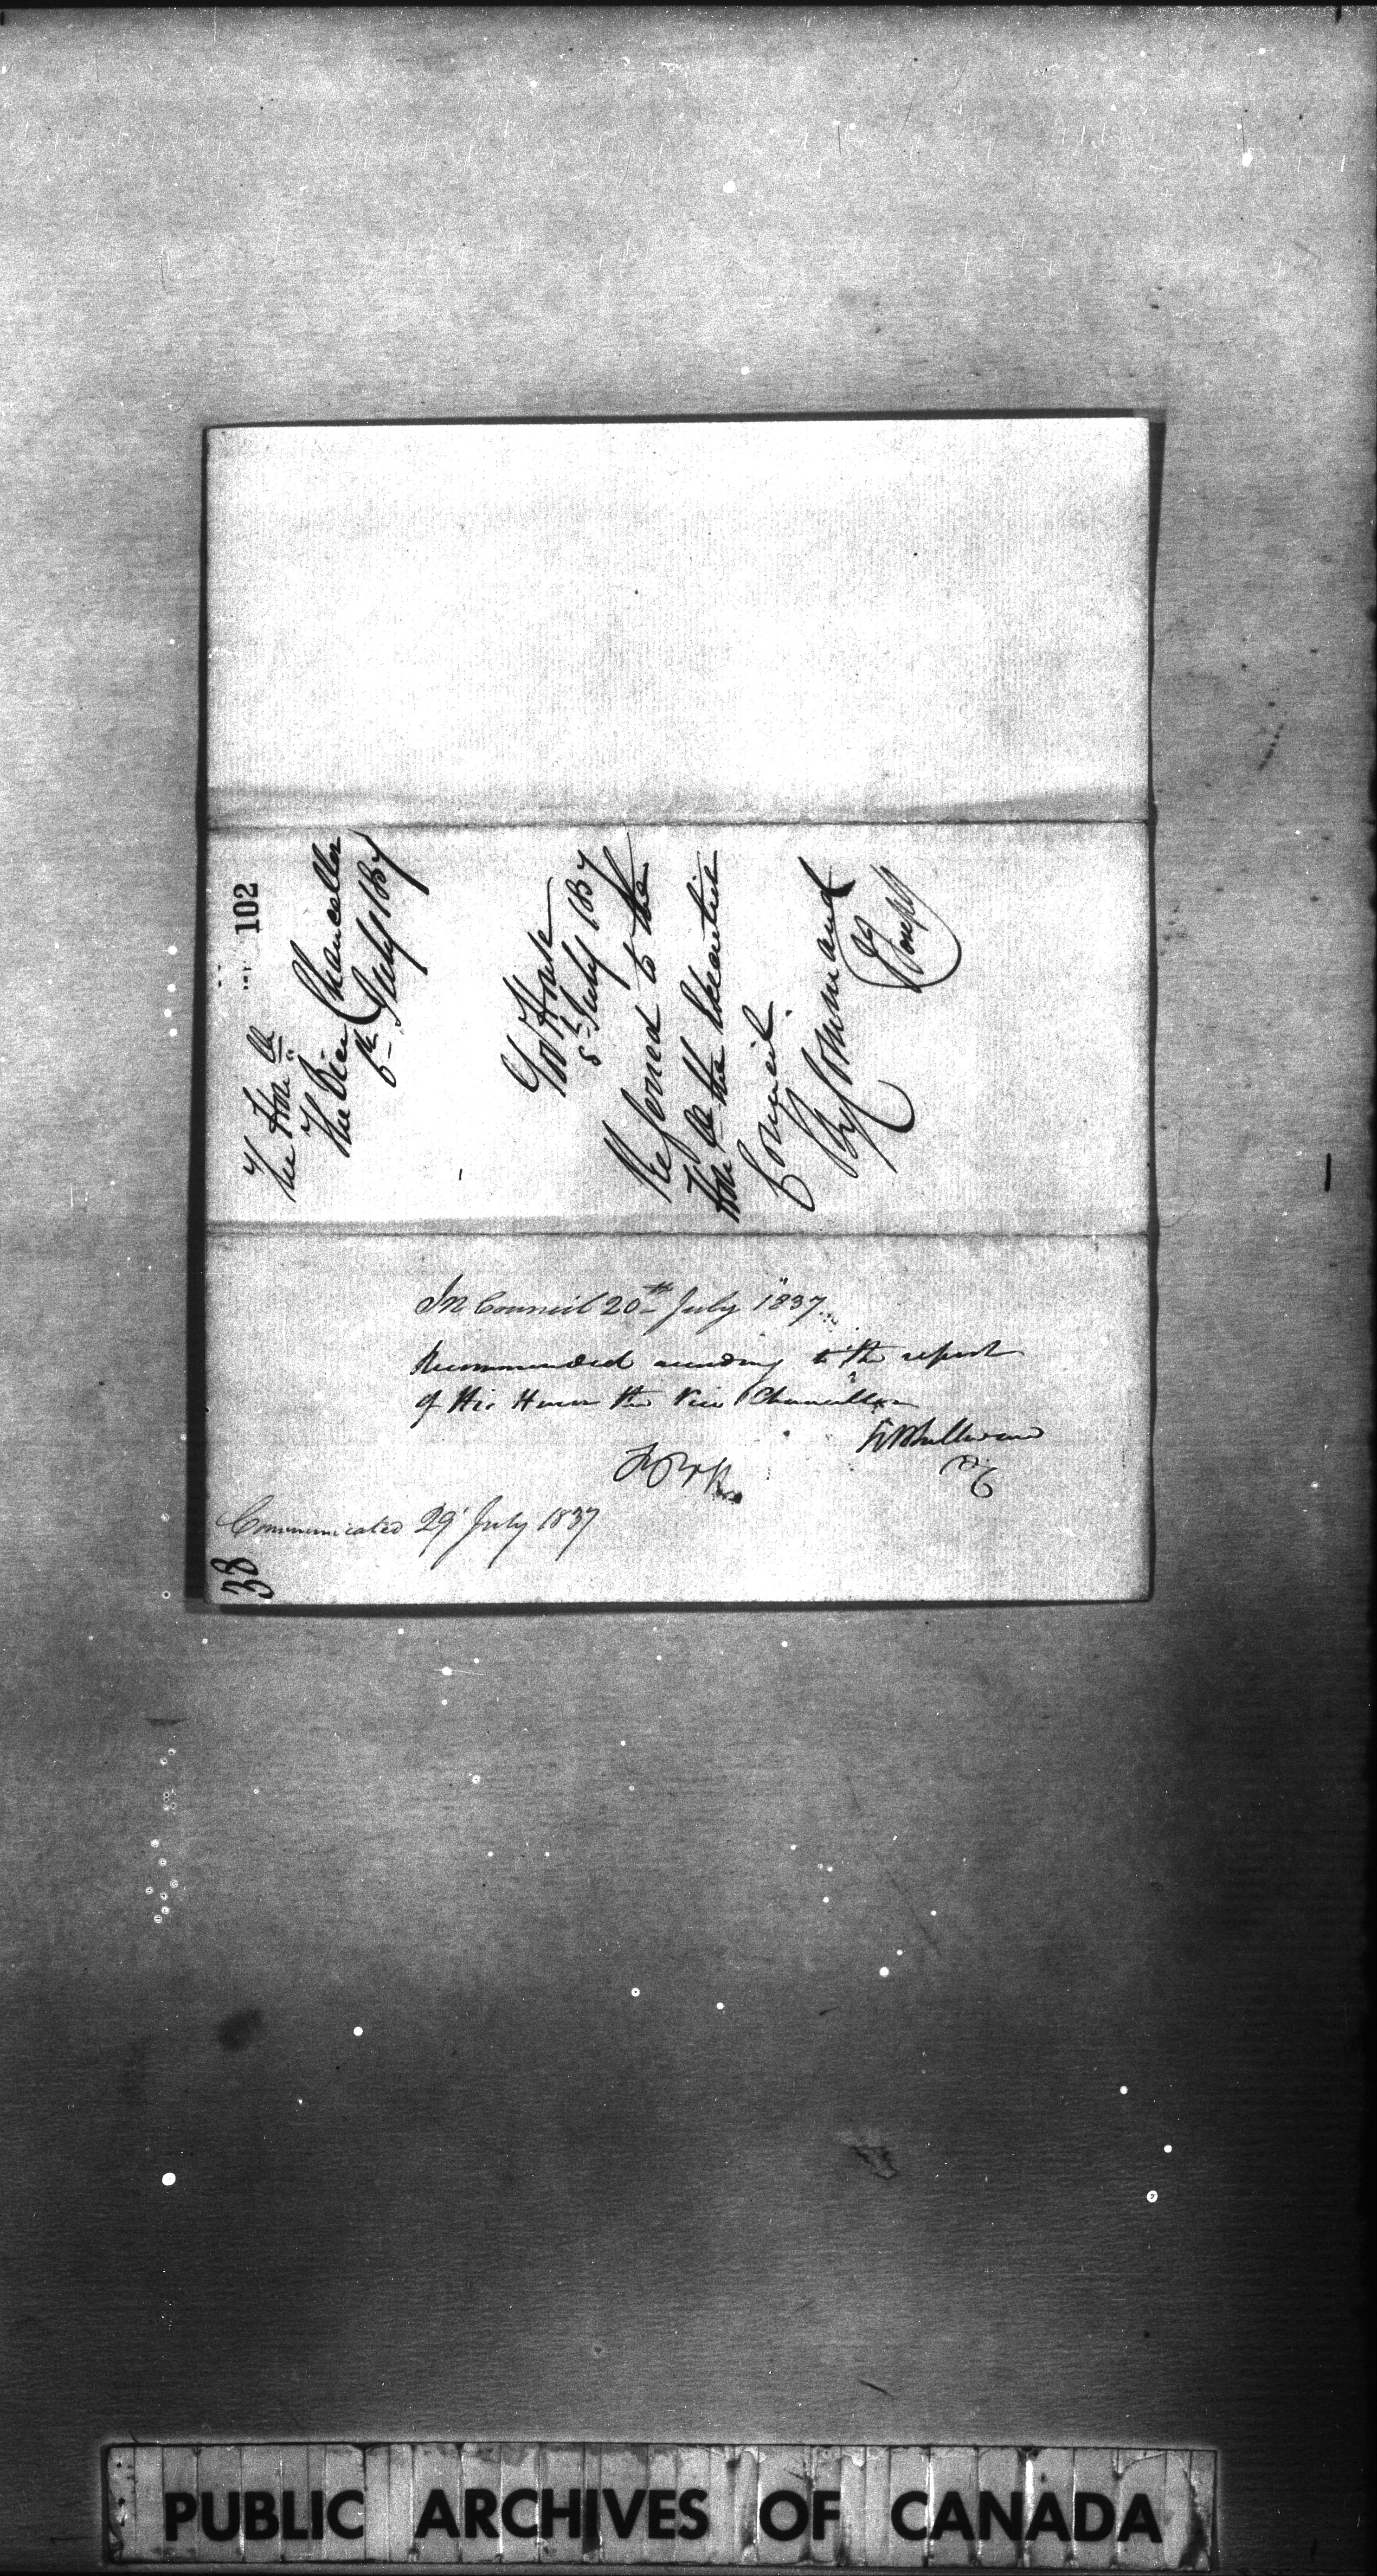 102
The Hon:ble
The Vice Chancellor
6th July 1837
Govt House
8th July 1837
Referred to the
Honble the Executive
Council.
By Command
J Joseph
In Council 20th July 1837.
Recommended according to the report
of His Honor the Vice Chancellor
RBSullivan
PC
FBH
Communicated 29 July 1837
38
PUBLIC ARCHIVES OF CANADA